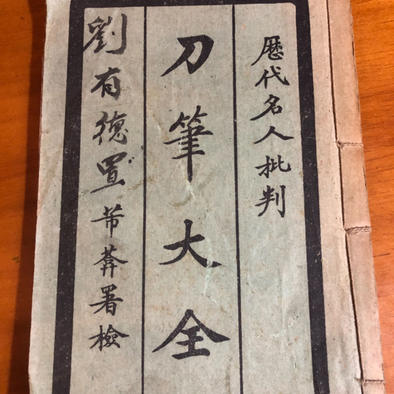 歷代名人批判
刀筆大全
劉有德置
芾葊署檢